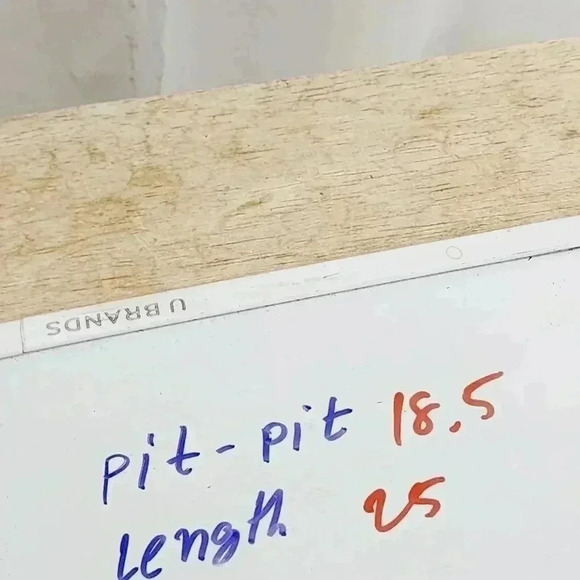 U BRANDS
pit-pit 18.5
Length 25